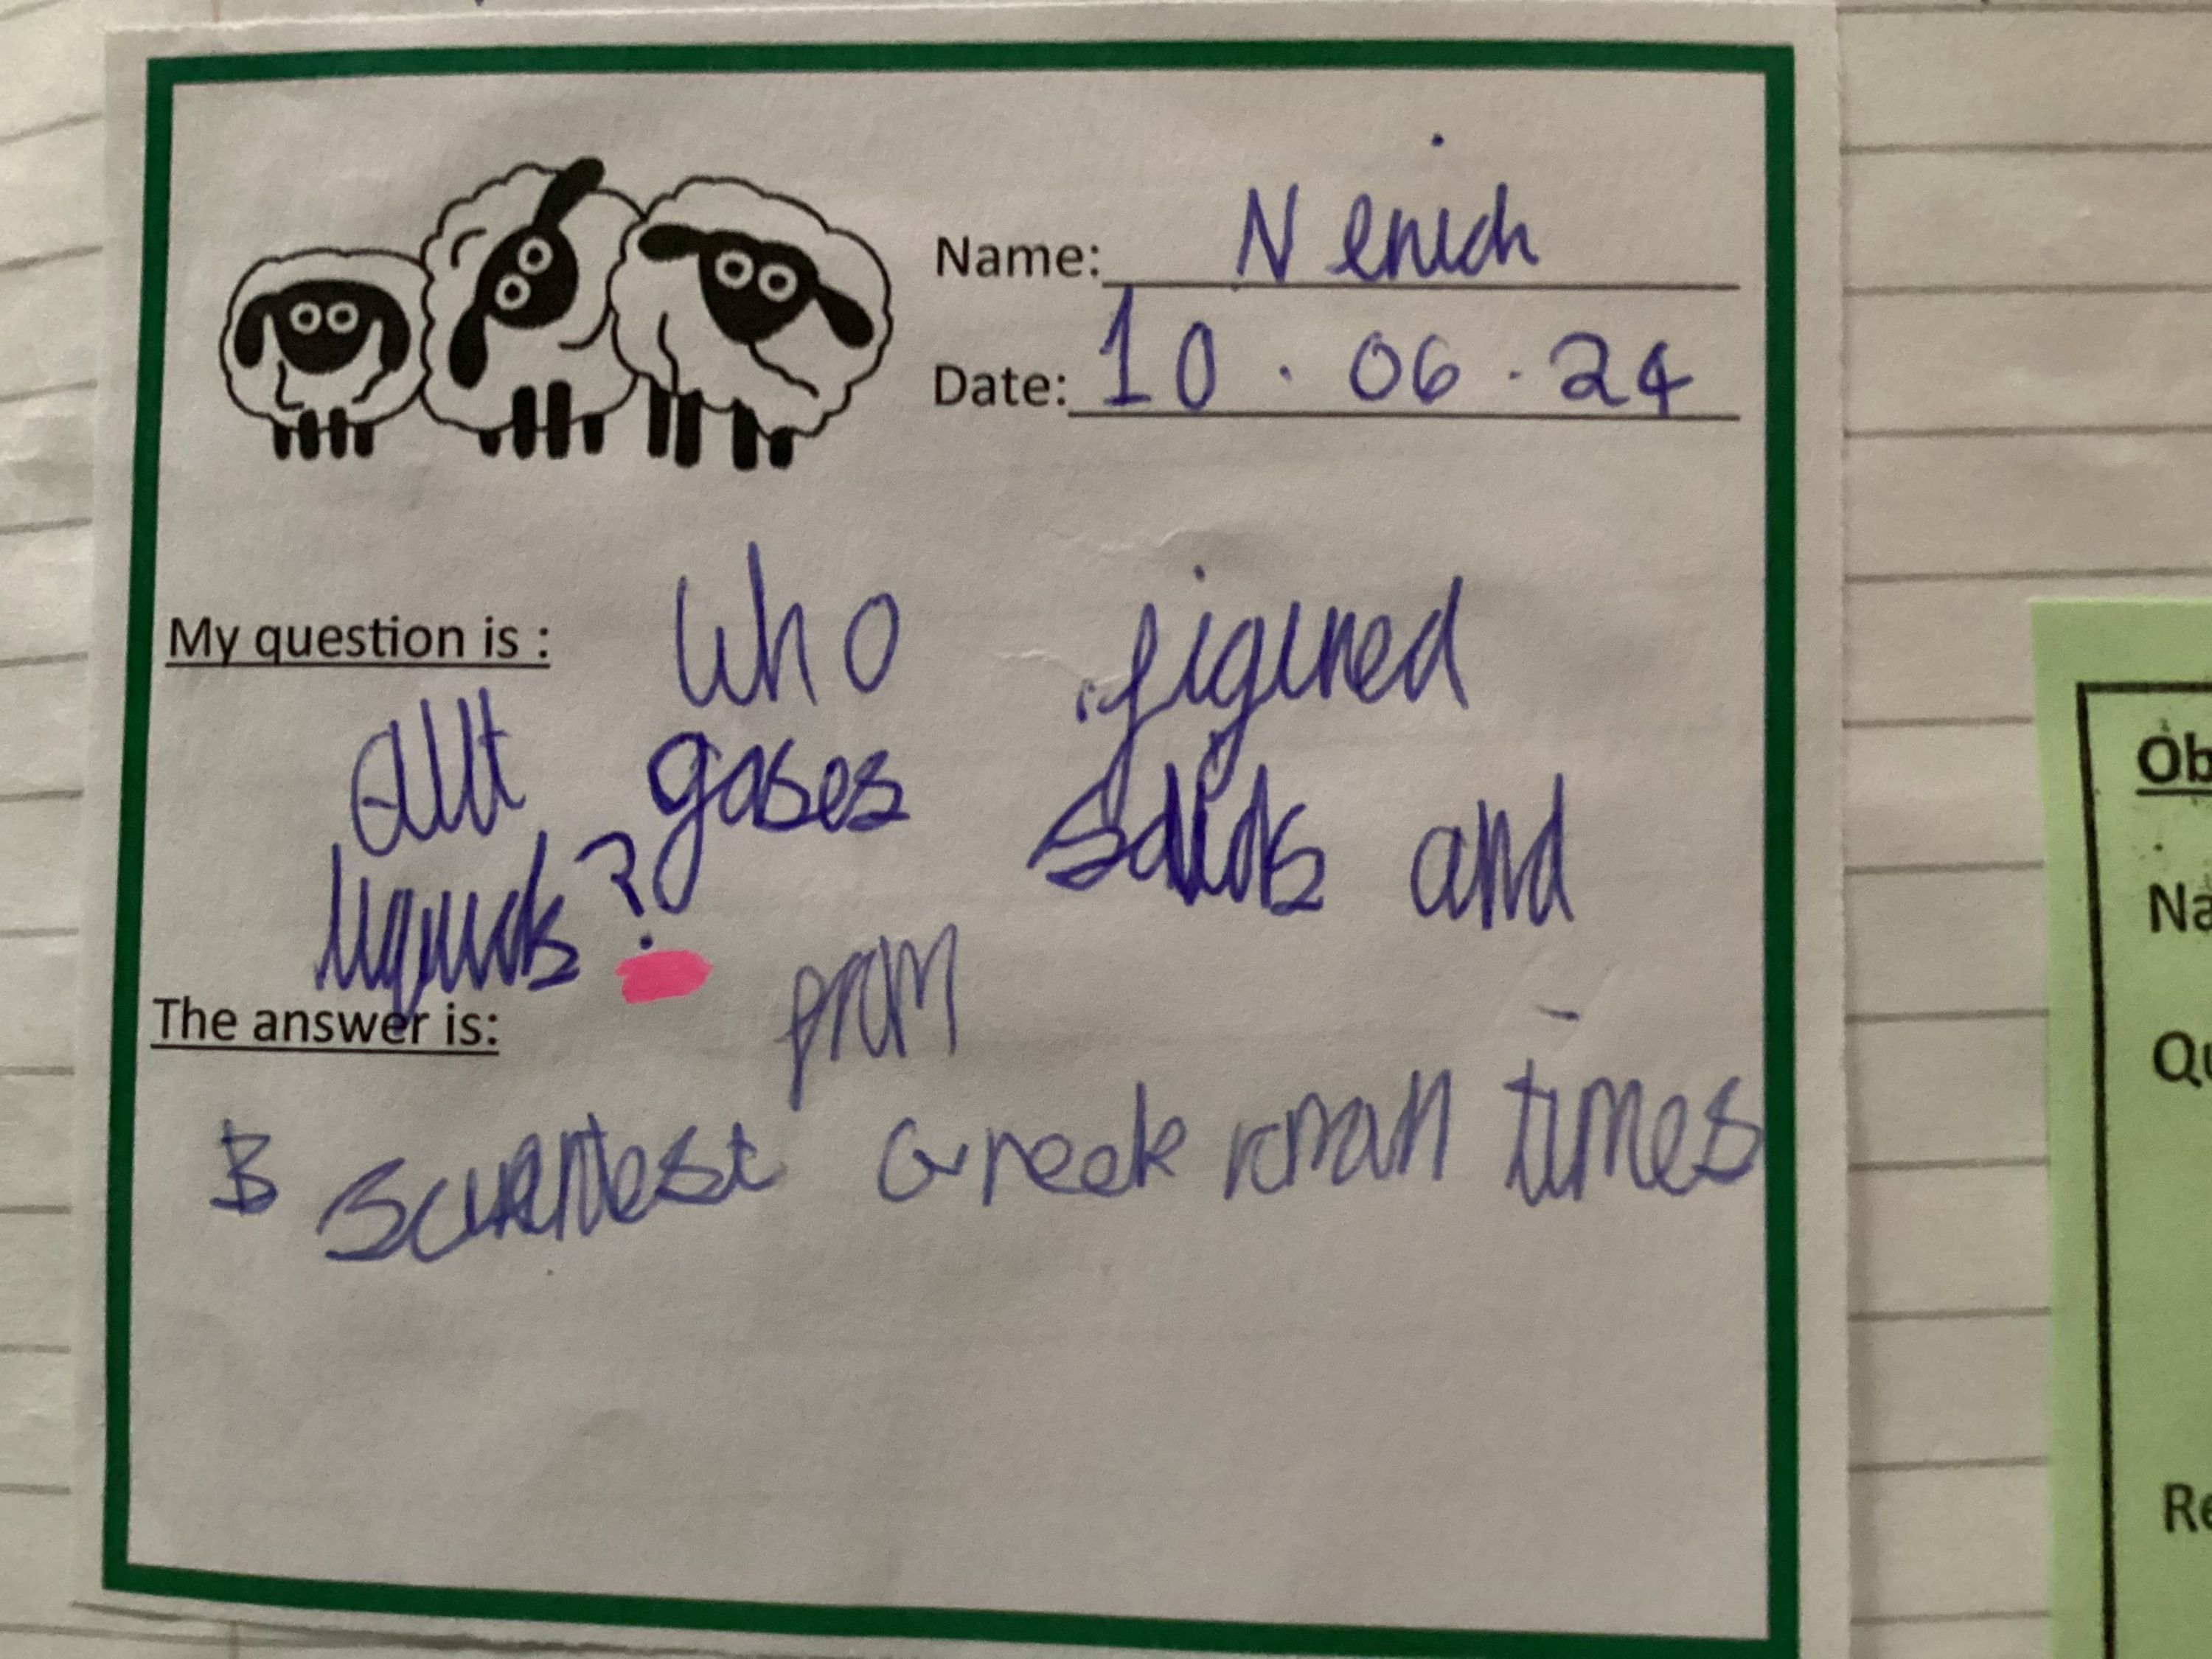 Name: Nenich
Date: 10.06.24
My question is : Who figured
out gases solids and
liquids?
The answer is: from
scientest Greek roman times
Ob
Na
Qu
Re